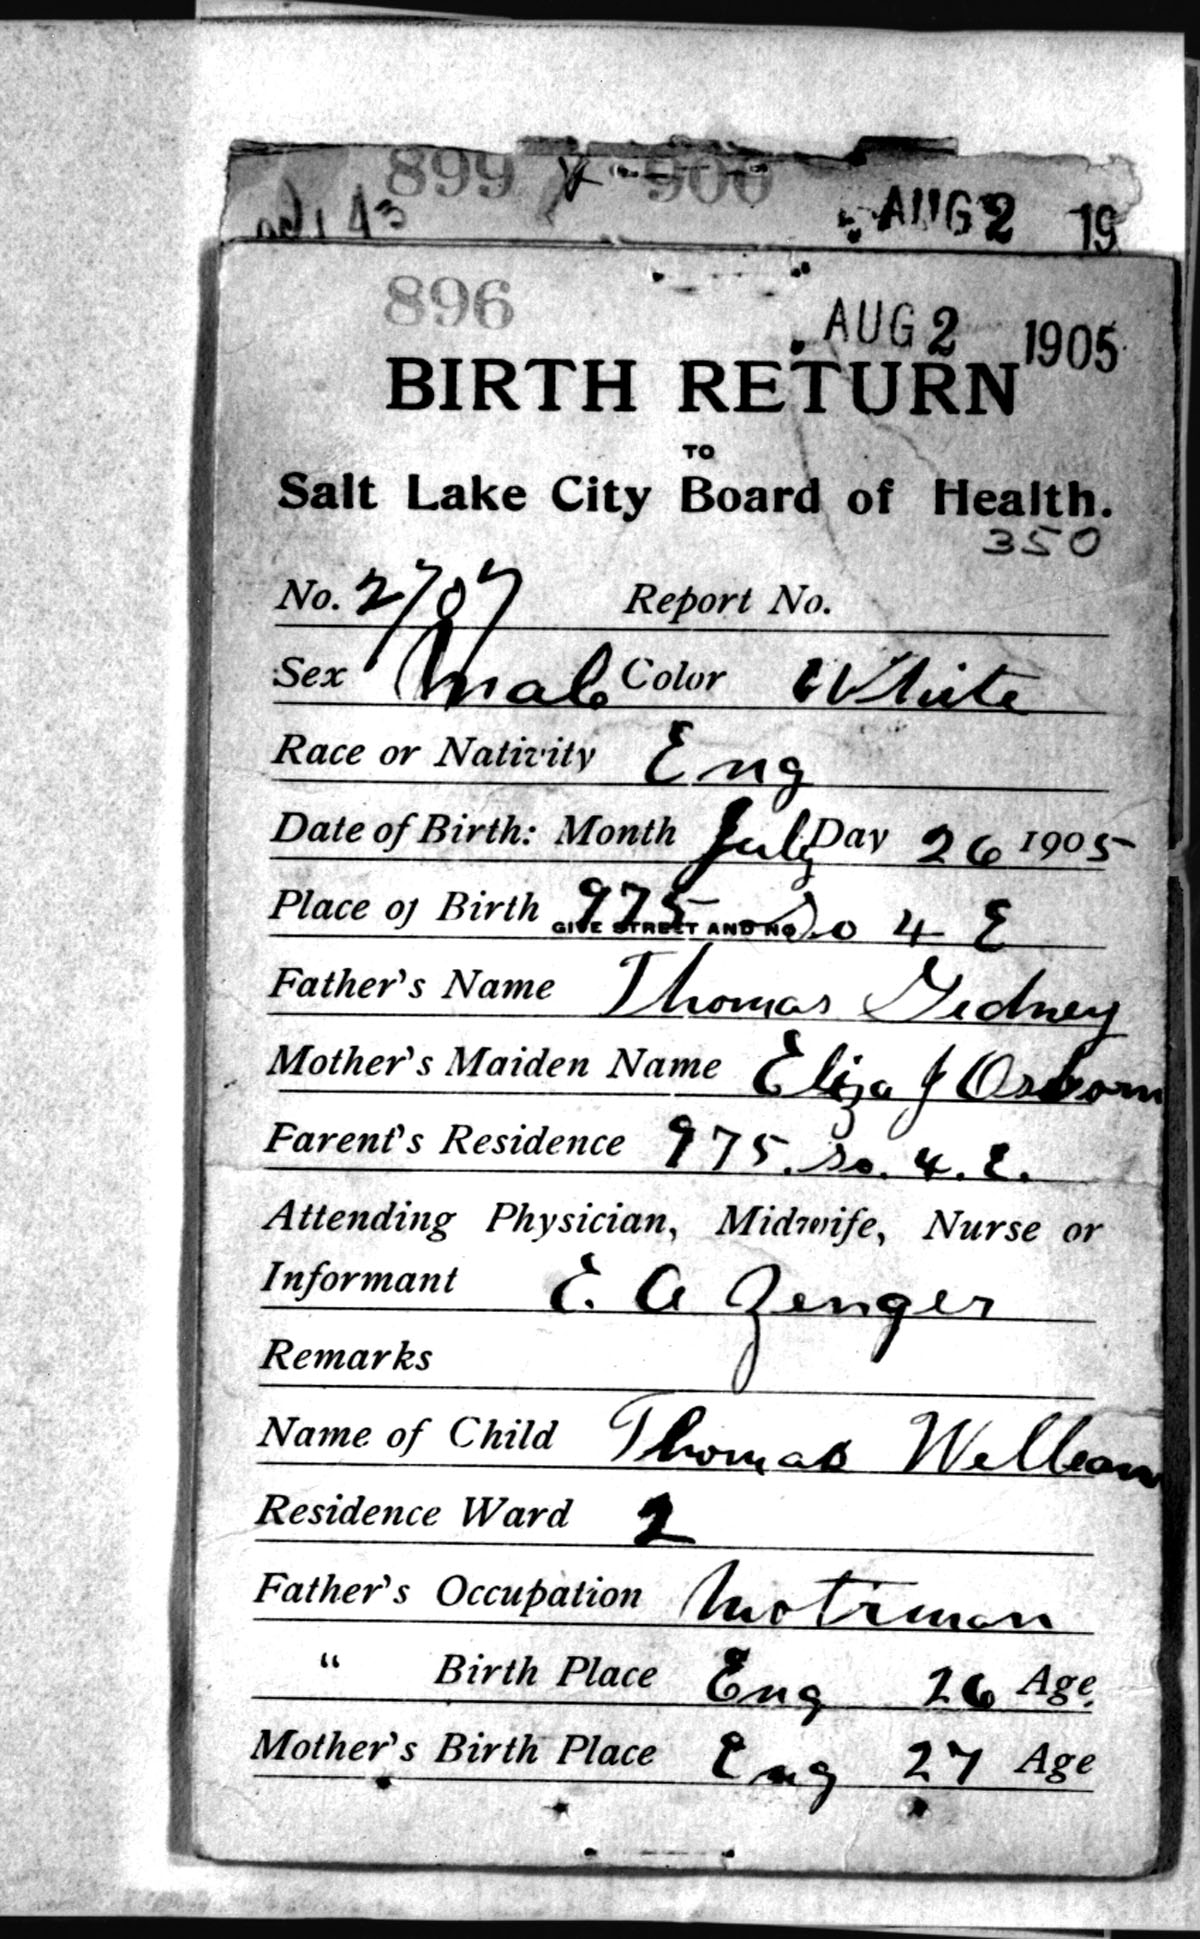 899 900
AUG 2 19
896
AUG 2 1905
BIRTH RETURN
TO
Salt Lake City Board of Health.
350
No. 2707 Report No.
Sex Male Color White
Race or Nativity Eng
Date of Birth: Month July Day 26 1905
Place of Birth 975 So 4 E
GIVE STREET AND NO.
Father's Name Thomas Gedney
Mother's Maiden Name Eliza J Osborn
Parent's Residence 975. So. 4. E.
Attending Physician, Midwife, Nurse or
Informant E. A Zenger
Remarks
Name of Child Thomas William
Residence Ward 2
Father's Occupation Motrman
" Birth Place Eng 26 Age
Mother's Birth Place Eng 27 Age